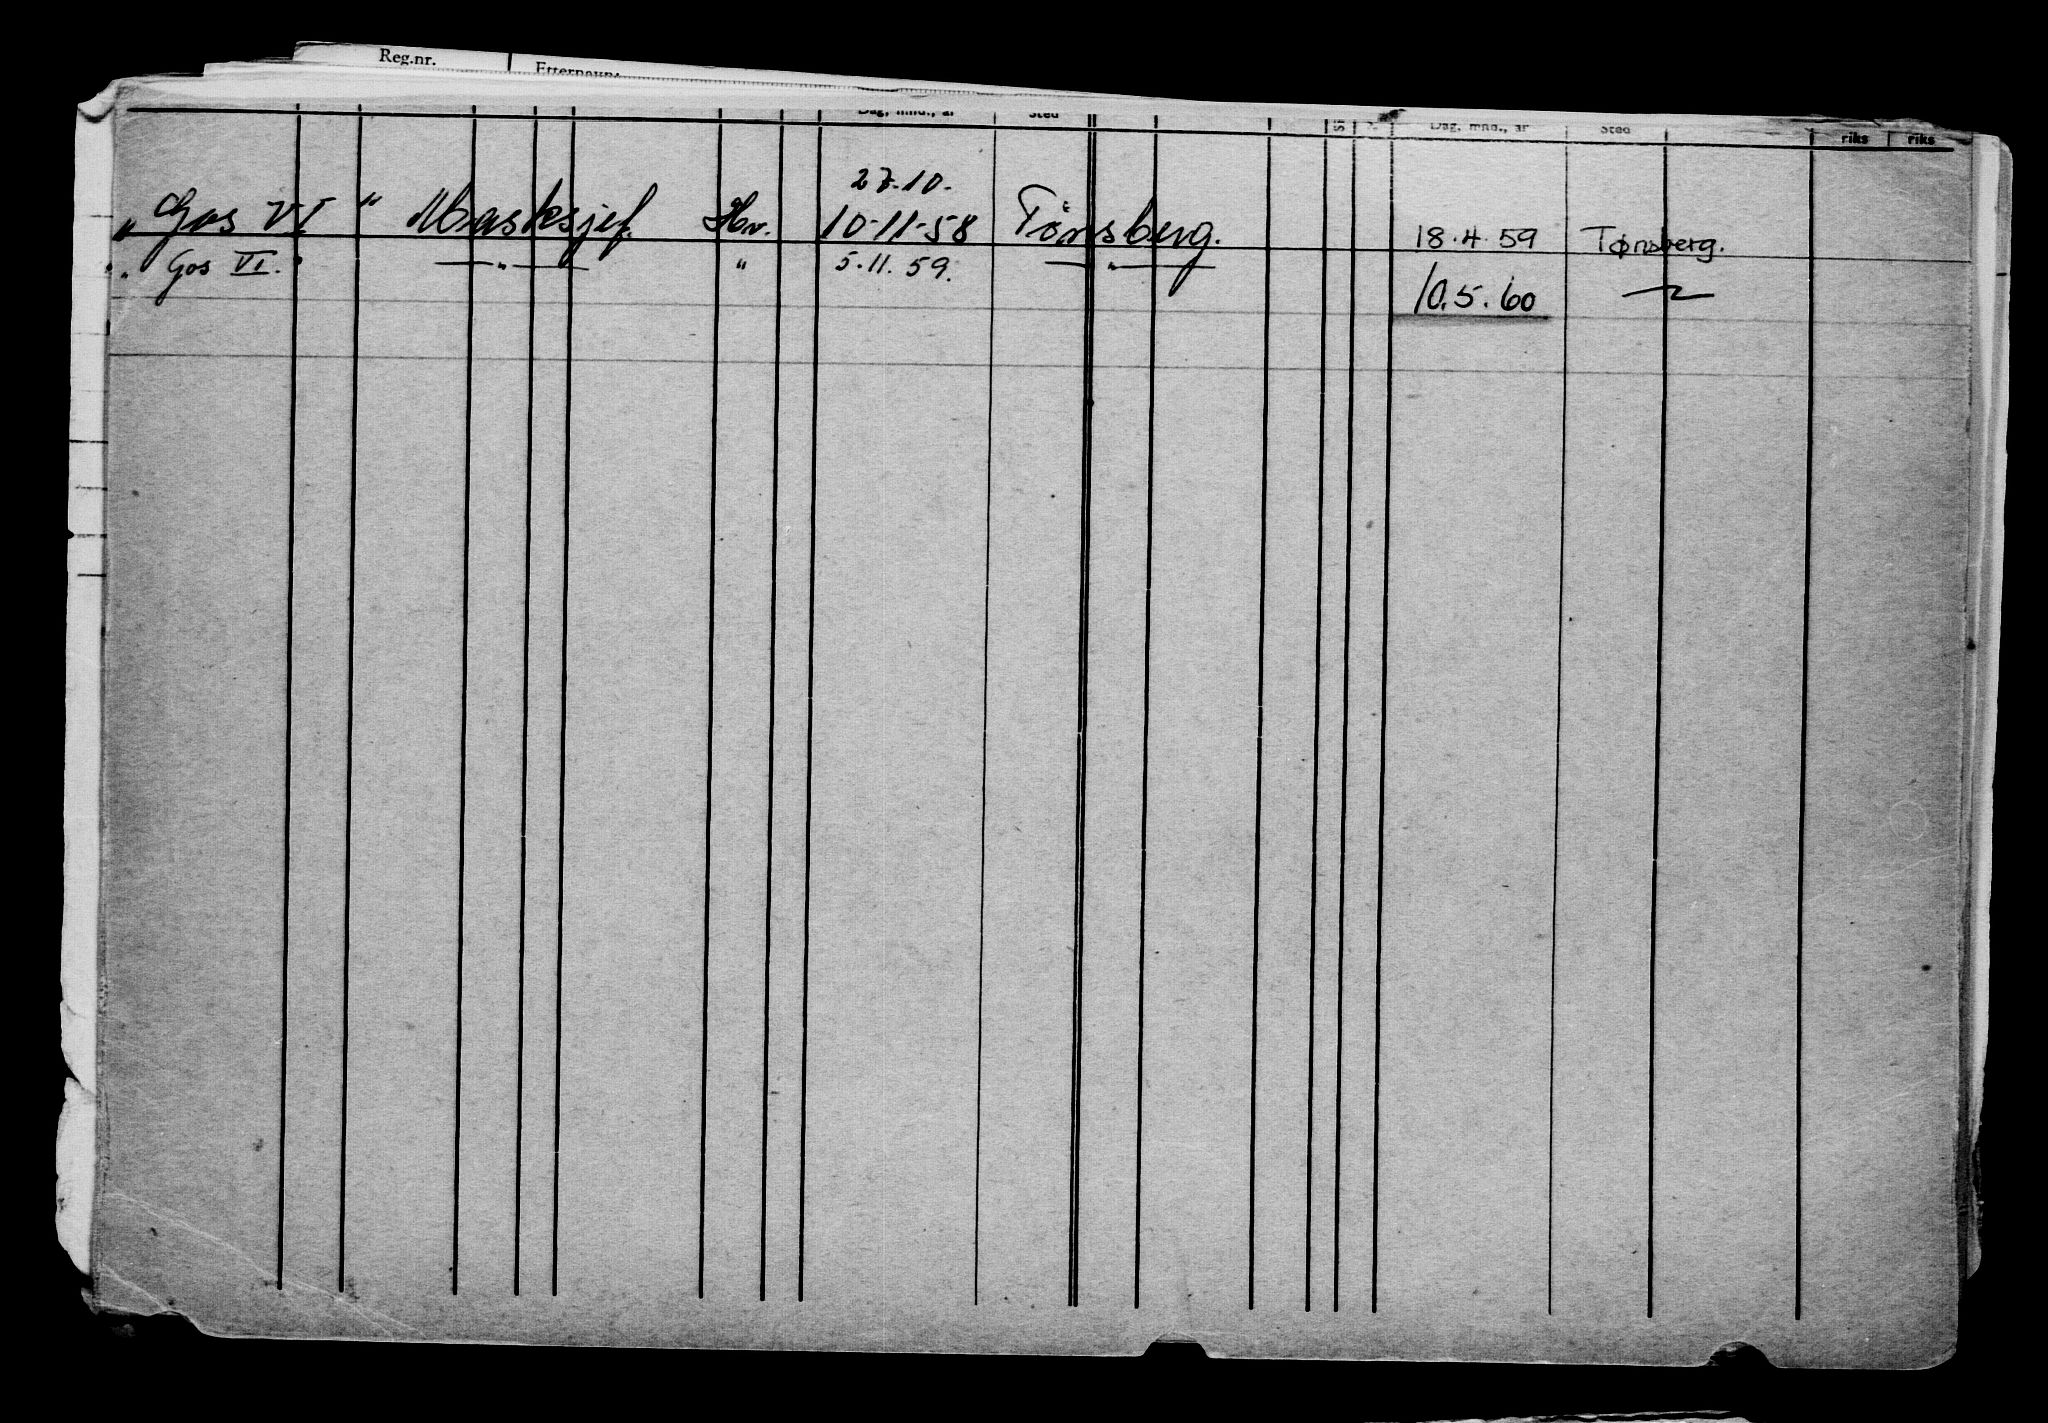 Reg.nr. Etternavn:
Dag, mnd., år Sted Dag, mnd., år Sted riks riks
27.10.
"Gos VI" Masksjef. Hv. 10-11-58 Tønsberg. 18.4.59 Tønsberg.
"Gos VI." —"— " 5.11.59. —"—
10.5.60